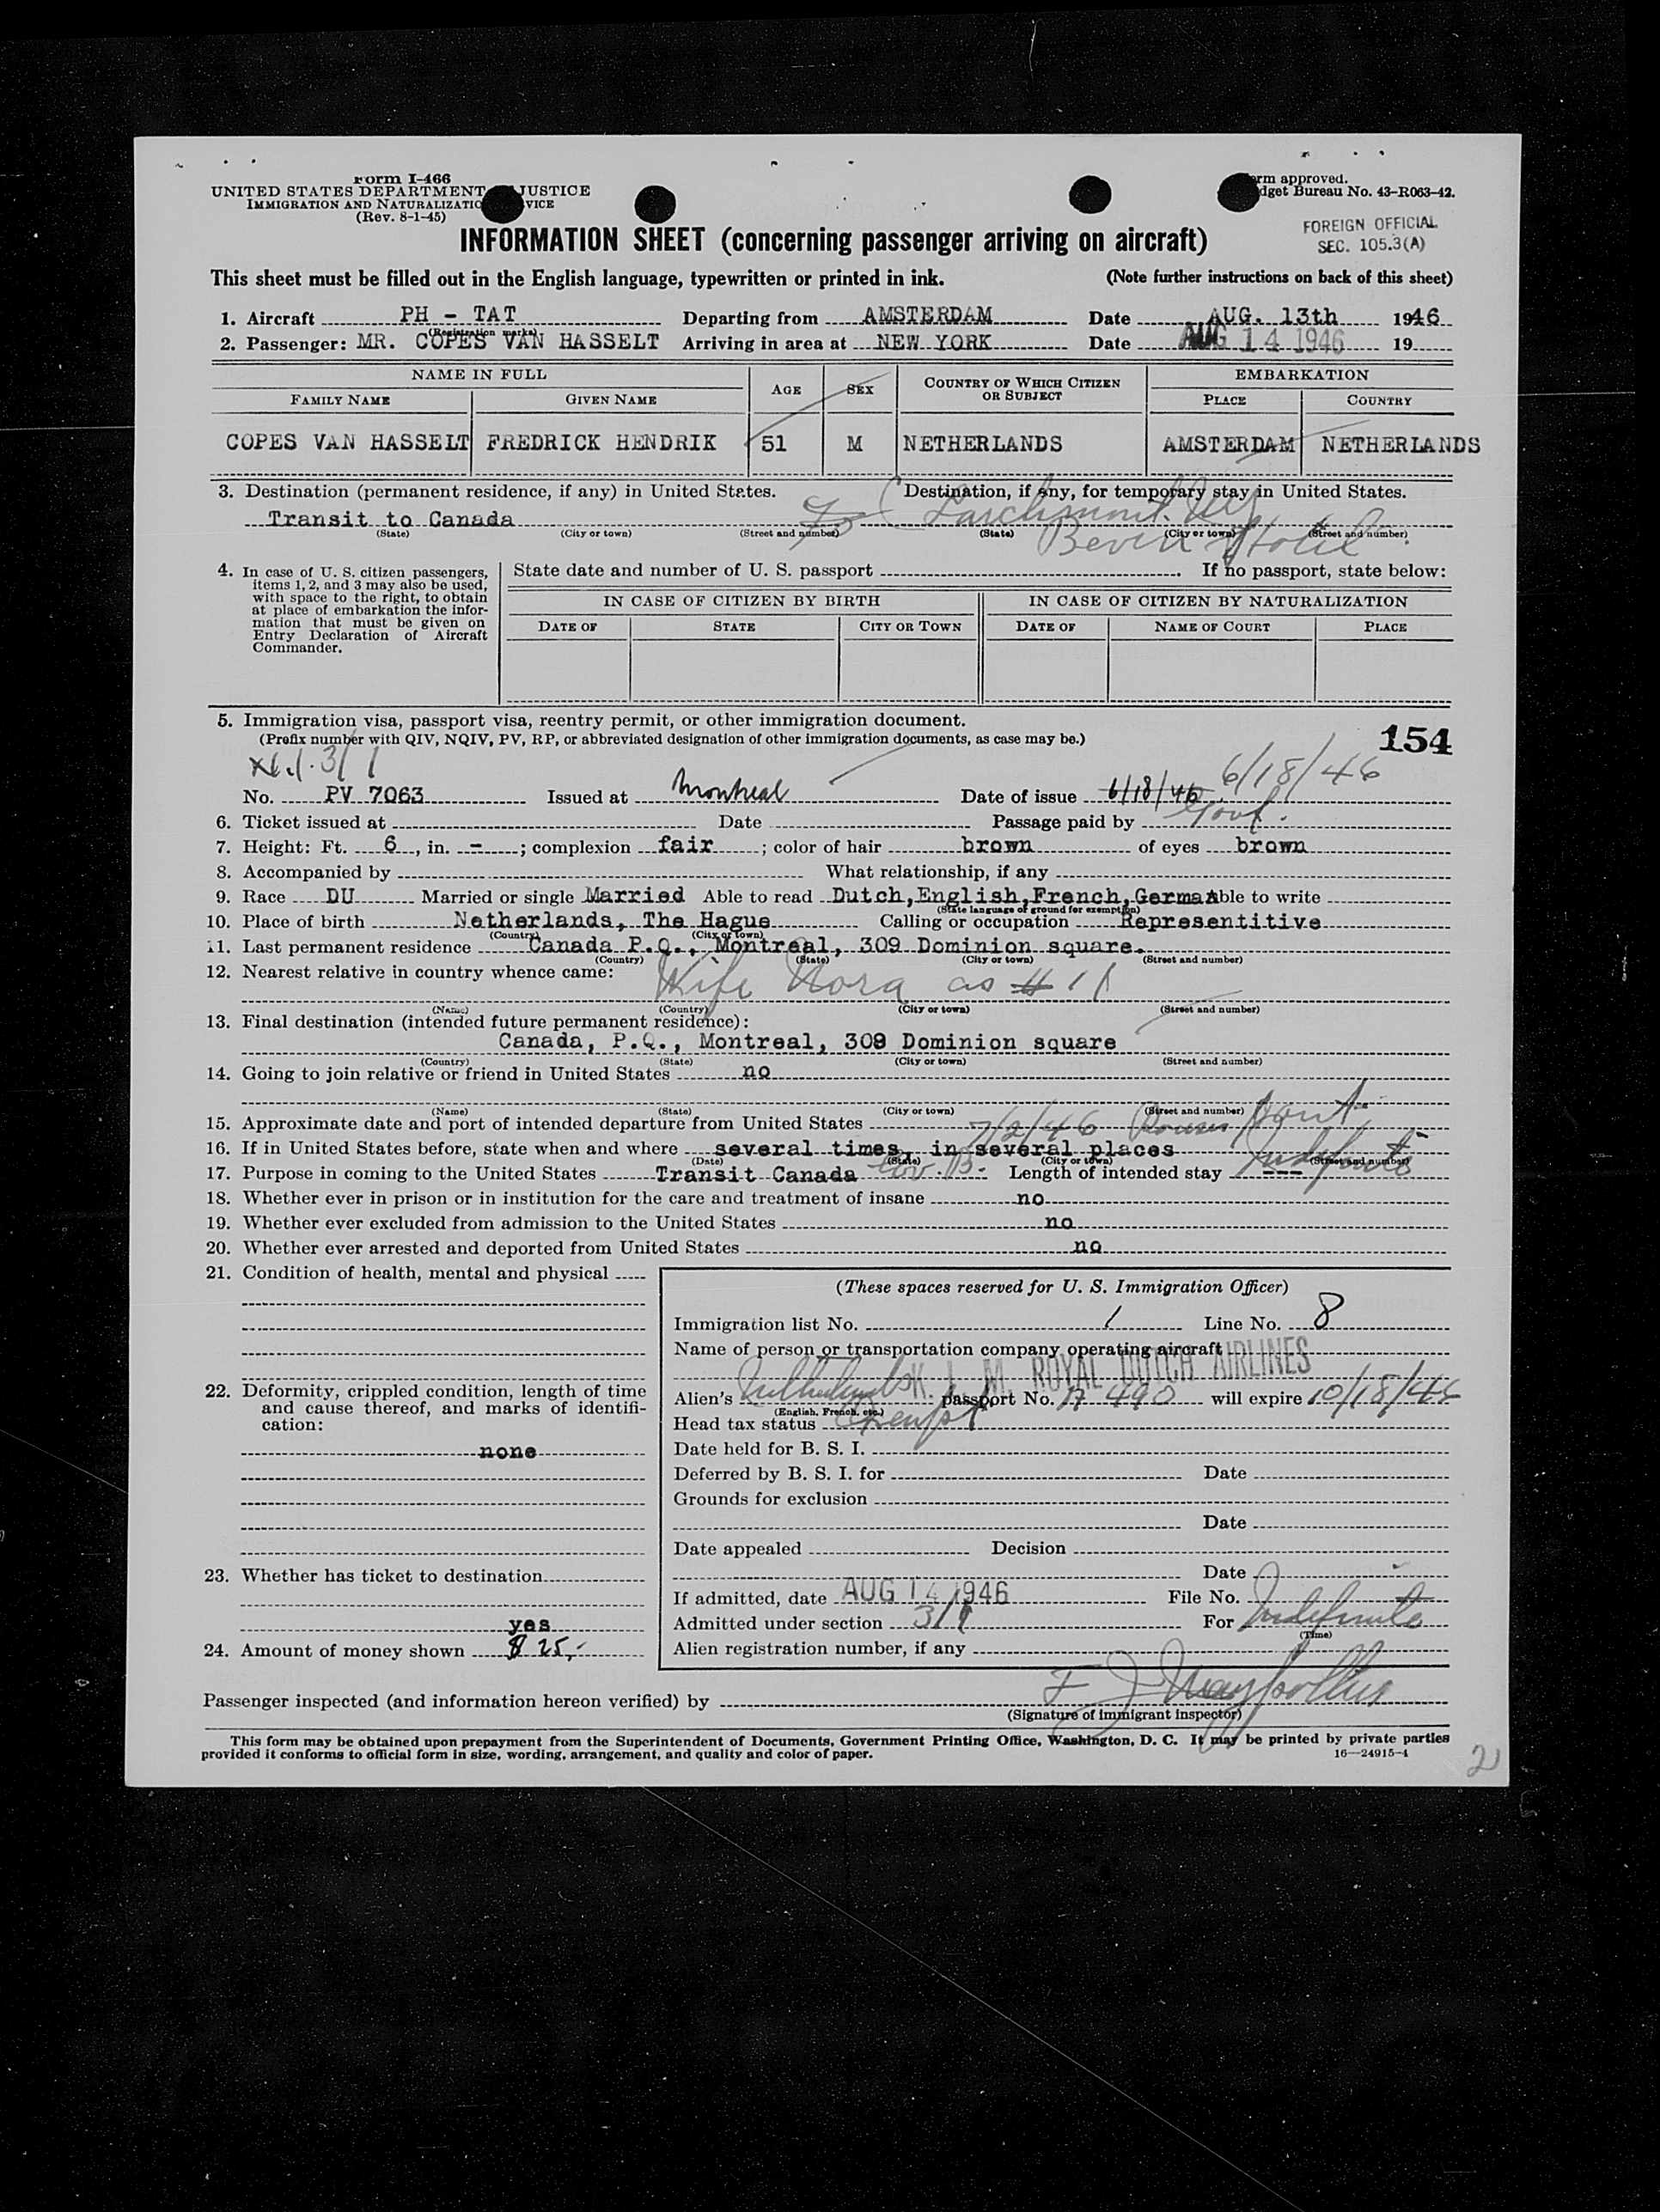 Form I-466
UNITED STATES DEPARTMENT JUSTICE
IMMIGRATION AND NATURALIZATIO VICE
(Rev. 8-1-45)
rm approved.
dget Bureau No. 43-R063-42.
FOREIGN OFFICIAL
SEC. 105.3(A)
INFORMATION SHEET (concerning passenger arriving on aircraft)
This sheet must be filled out in the English language, typewritten or printed in ink. (Note further instructions on back of this sheet)
1. Aircraft PH - TAT Departing from AMSTERDAM Date AUG. 13th 1946
(Registration marks)
2. Passenger: MR. COPES VAN HASSELT Arriving in area at NEW YORK Date AUG 14 1946 19
NAME IN FULL AGE SEX COUNTRY OF WHICH CITIZEN OR SUBJECT EMBARKATION
FAMILY NAME GIVEN NAME PLACE COUNTRY
COPES VAN HASSELT FREDRICK HENDRIK 51 M NETHERLANDS AMSTERDAM NETHERLANDS
3. Destination (permanent residence, if any) in United States. Destination, if any, for temporary stay in United States.
Transit to Canada Larchmont. NY
(State) (City or town) (Street and number) (State) (City or town) (Street and number)
Hotel
4. In case of U. S. citizen passengers, items 1, 2, and 3 may also be used, with space to the right, to obtain at place of embarkation the information that must be given on Entry Declaration of Aircraft Commander.
State date and number of U. S. passport . If no passport, state below:
IN CASE OF CITIZEN BY BIRTH IN CASE OF CITIZEN BY NATURALIZATION
DATE OF STATE CITY OR TOWN DATE OF NAME OF COURT PLACE
5. Immigration visa, passport visa, reentry permit, or other immigration document.
(Prefix number with QIV, NQIV, PV, RP, or abbreviated designation of other immigration documents, as case may be.)
154
3/1 6/18/46
No. PV 7063 Issued at Montreal Date of issue 6/18/46
6. Ticket issued at Date Passage paid by Govt.
7. Height: Ft. 6, in. -; complexion fair; color of hair brown of eyes brown
8. Accompanied by What relationship, if any
9. Race DU Married or single Married Able to read Dutch,English,French,German Able to write
(State language or ground for exemption)
10. Place of birth Netherlands, The Hague Calling or occupation Representitive
(Country) (City or town)
11. Last permanent residence Canada P.Q., Montreal, 309 Dominion square.
(Country) (State) (City or town) (Street and number)
12. Nearest relative in country whence came: Wife Nora as # 11
(Name) (Country) (City or town) (Street and number)
13. Final destination (intended future permanent residence):
Canada, P.Q., Montreal, 309 Dominion square
(Country) (State) (City or town) (Street and number)
14. Going to join relative or friend in United States no
(Name) (State) (City or town) (Street and number)
15. Approximate date and port of intended departure from United States 7/2/46 Rouses Point
16. If in United States before, state when and where several times, in several places
(Date) (State) (City or town) (Street and number)
17. Purpose in coming to the United States Transit Canada Gov. B. Length of intended stay --- Indefinite
18. Whether ever in prison or in institution for the care and treatment of insane no
19. Whether ever excluded from admission to the United States no
20. Whether ever arrested and deported from United States no
21. Condition of health, mental and physical
22. Deformity, crippled condition, length of time and cause thereof, and marks of identification:
none
23. Whether has ticket to destination
yes
24. Amount of money shown $ 25,-
(These spaces reserved for U. S. Immigration Officer)
Immigration list No. 1 Line No. 8
Name of person or transportation company operating aircraft
K. L. M. ROYAL DUTCH AIRLINES
Alien's Netherlands passport No. 490 will expire 10/18/46
(English, French, etc.)
Head tax status Exempt
Date held for B. S. I.
Deferred by B. S. I. for Date
Grounds for exclusion
Date
Date appealed Decision
Date
If admitted, date AUG 14 1946 File No.
Admitted under section 3/1 For Indefinite
(Time)
Alien registration number, if any
Passenger inspected (and information hereon verified) by F J
(Signature of immigrant inspector)
This form may be obtained upon prepayment from the Superintendent of Documents, Government Printing Office, Washington, D. C. It may be printed by private parties
provided it conforms to official form in size, wording, arrangement, and quality and color of paper. 16—24915-4
2